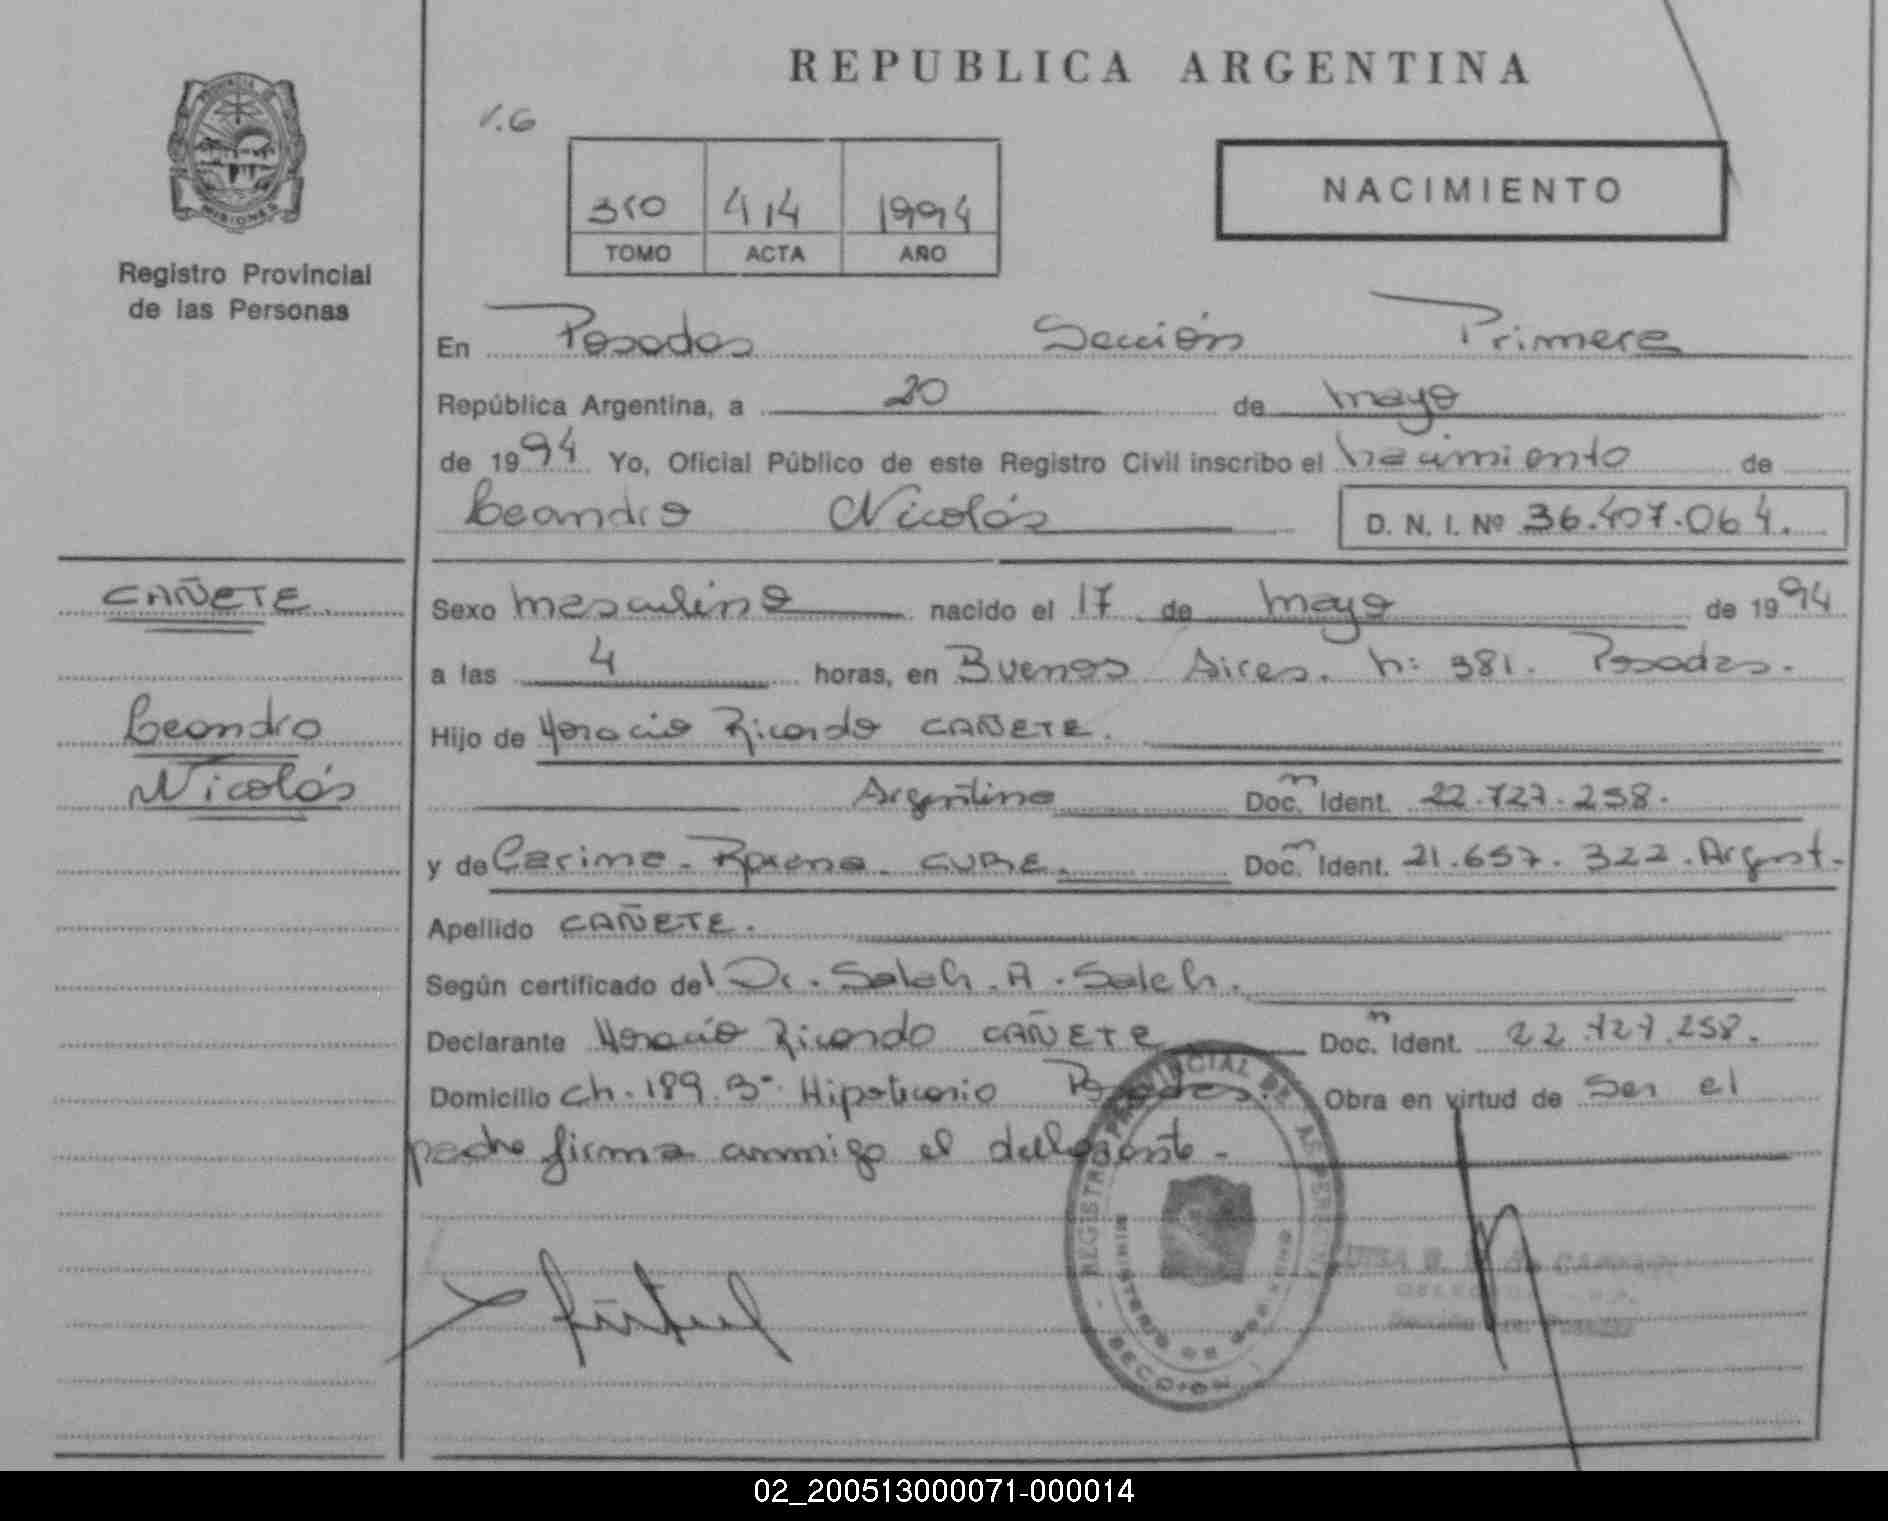 REPUBLICA ARGENTINA
PROVINCIA
MISIONES
Registro Provincial
de las Personas
310 414 1994
TOMO ACTA AÑO
NACIMIENTO
En Posadas Sección Primera
República Argentina, a 20 de mayo
de 1994 Yo, Oficial Público de este Registro Civil inscribo el nacimiento de
Leandro Nicolás D. N. I. Nº 36.407.064.
CAÑETE
Leandro
Nicolás
Sexo masculino nacido el 17 de mayo de 1994
a las 4 horas, en Buenos Aires. n: 381. Posadas.
Hijo de Horacio Ricardo CAÑETE.
Argentino Doc. Ident. 22.727.258.
y de Carina Roxana CURE. Doc. Ident. 21.657.322. Argent.
Apellido CAÑETE.
Según certificado del Dr. Saleh. A. Saleh.
Declarante Horacio Ricardo CAÑETE Doc. Ident. 22.727.258.
Domicilio Ch. 189. Bº Hipotecario Posadas. Obra en virtud de Ser el
padre firma conmigo el declarante -
REGISTRO PROVINCIAL DE LAS PERSONAS
SECCION
02_200513000071-000014